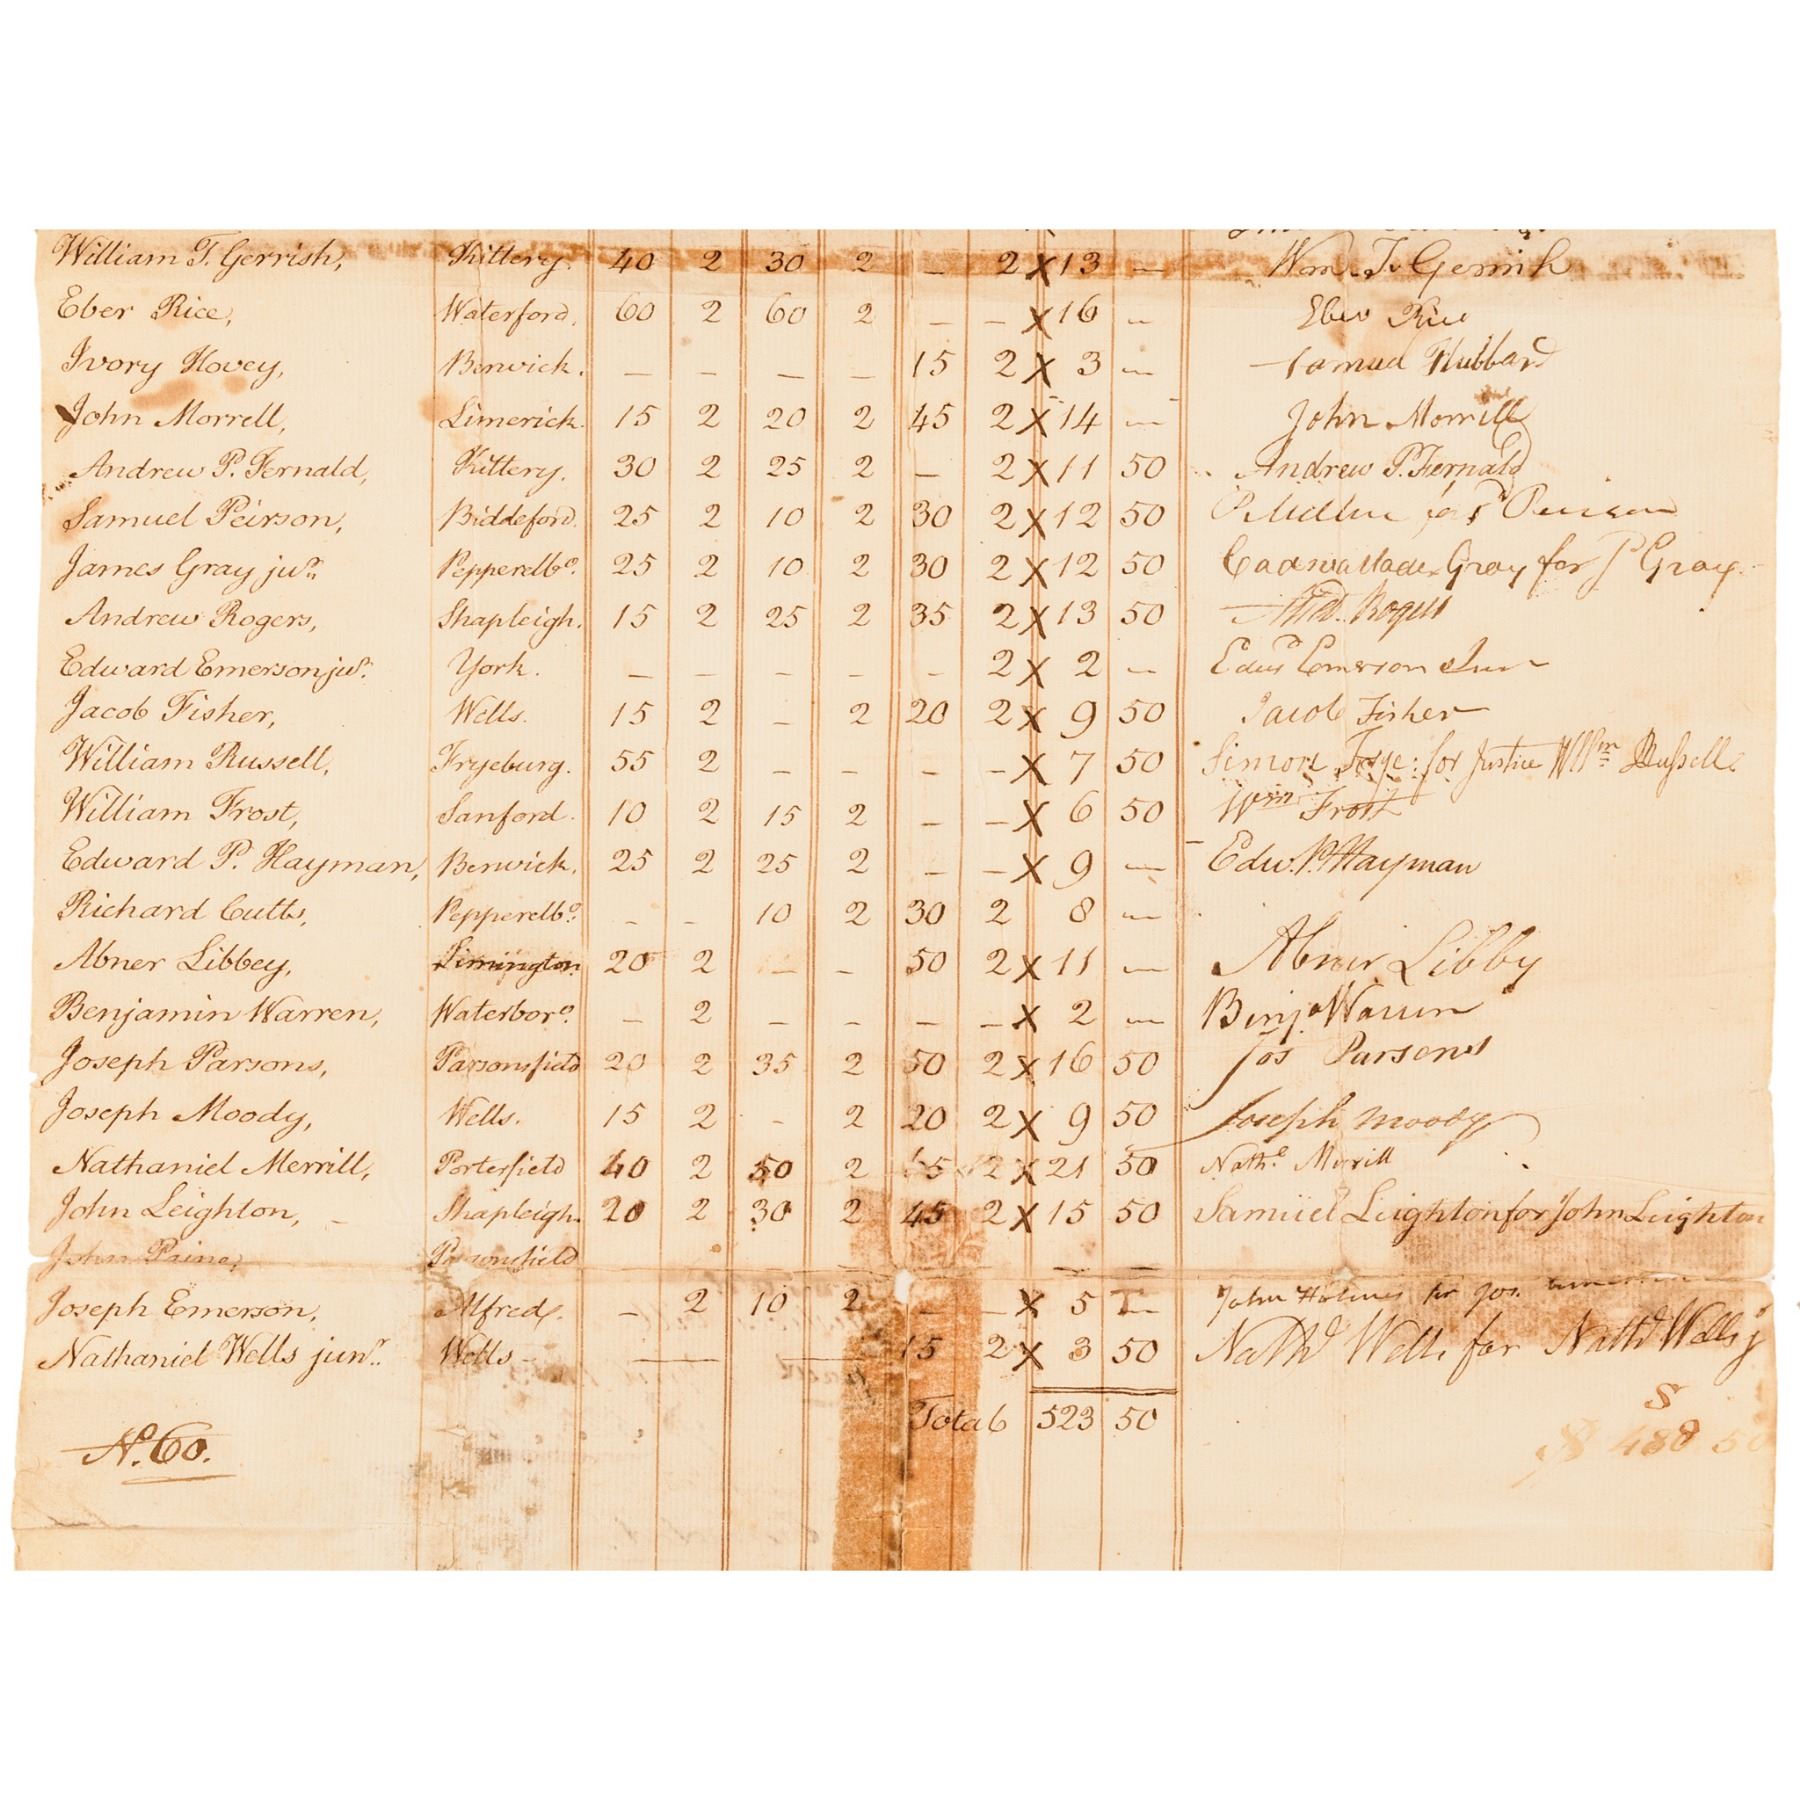 William T. Gerrish, Kittery. 40 2 30 2 – 2 X 13 — Wm. T. Gerrish
Eber Rice, Waterford. 60 2 60 2 – – X 16 — Eber Rice
Ivory Hovey, Berwick. – – – – 15 2 X 3 — Samuel Hubbard
John Morrell, Limerick. 15 2 20 2 45 2 X 14 — John Morrill
Andrew P. Fernald, Kittery. 30 2 25 2 – 2 X 11 50 Andrew P. Fernald
Samuel Peirson, Biddeford. 25 2 10 2 30 2 X 12 50
James Gray junr. Pepperellbo. 25 2 10 2 30 2 X 12 50 Cadwallader Gray for J Gray.
Andrew Rogers, Shapleigh. 15 2 25 2 35 2 X 13 50 Rogers
Edward Emerson jur. York. – – – – – 2 X 2 — Edwd Emerson Jun
Jacob Fisher, Wells. 15 2 – 2 20 2 X 9 50 Jacob Fisher
William Russell, Fryeburg. 55 2 – – – – X 7 50 Simon Frye: for Justice Wllm Russell.
William Frost, Sanford. 10 2 15 2 – – X 6 50 Wm Frost
Edward P. Hayman, Berwick. 25 2 25 2 – – X 9 — Edw. P. Hayman
Richard Cutts, Pepperellbo. – – 10 2 30 2 8 —
Abner Libbey, Limington 20 2 – – 50 2 X 11 — Abner Libby
Benjamin Warren, Waterboro. – 2 – – – – X 2 — Benja Warren
Joseph Parsons, Parsonsfield 20 2 35 2 50 2 X 16 50 Jos Parsons
Joseph Moody, Wells. 15 2 – 2 20 2 X 9 50 Joseph Moody
Nathaniel Merrill, Porterfield 40 2 50 2 65 2 X 21 50 Nathl. Merrill
John Leighton, – Shapleigh. 20 2 30 2 45 2 X 15 50 Samuel Leighton for John Leighton
John Paine, Parsonsfield
Joseph Emerson, Alfred. – 2 10 2 – – X 5 — John Holmes for Jos. Emerson
Nathaniel Wells junr. Wells – — — 15 2 X 3 50 Nathl Wells for Nathl Wells j
Total 523 50
S
No. 60. $ 488 50